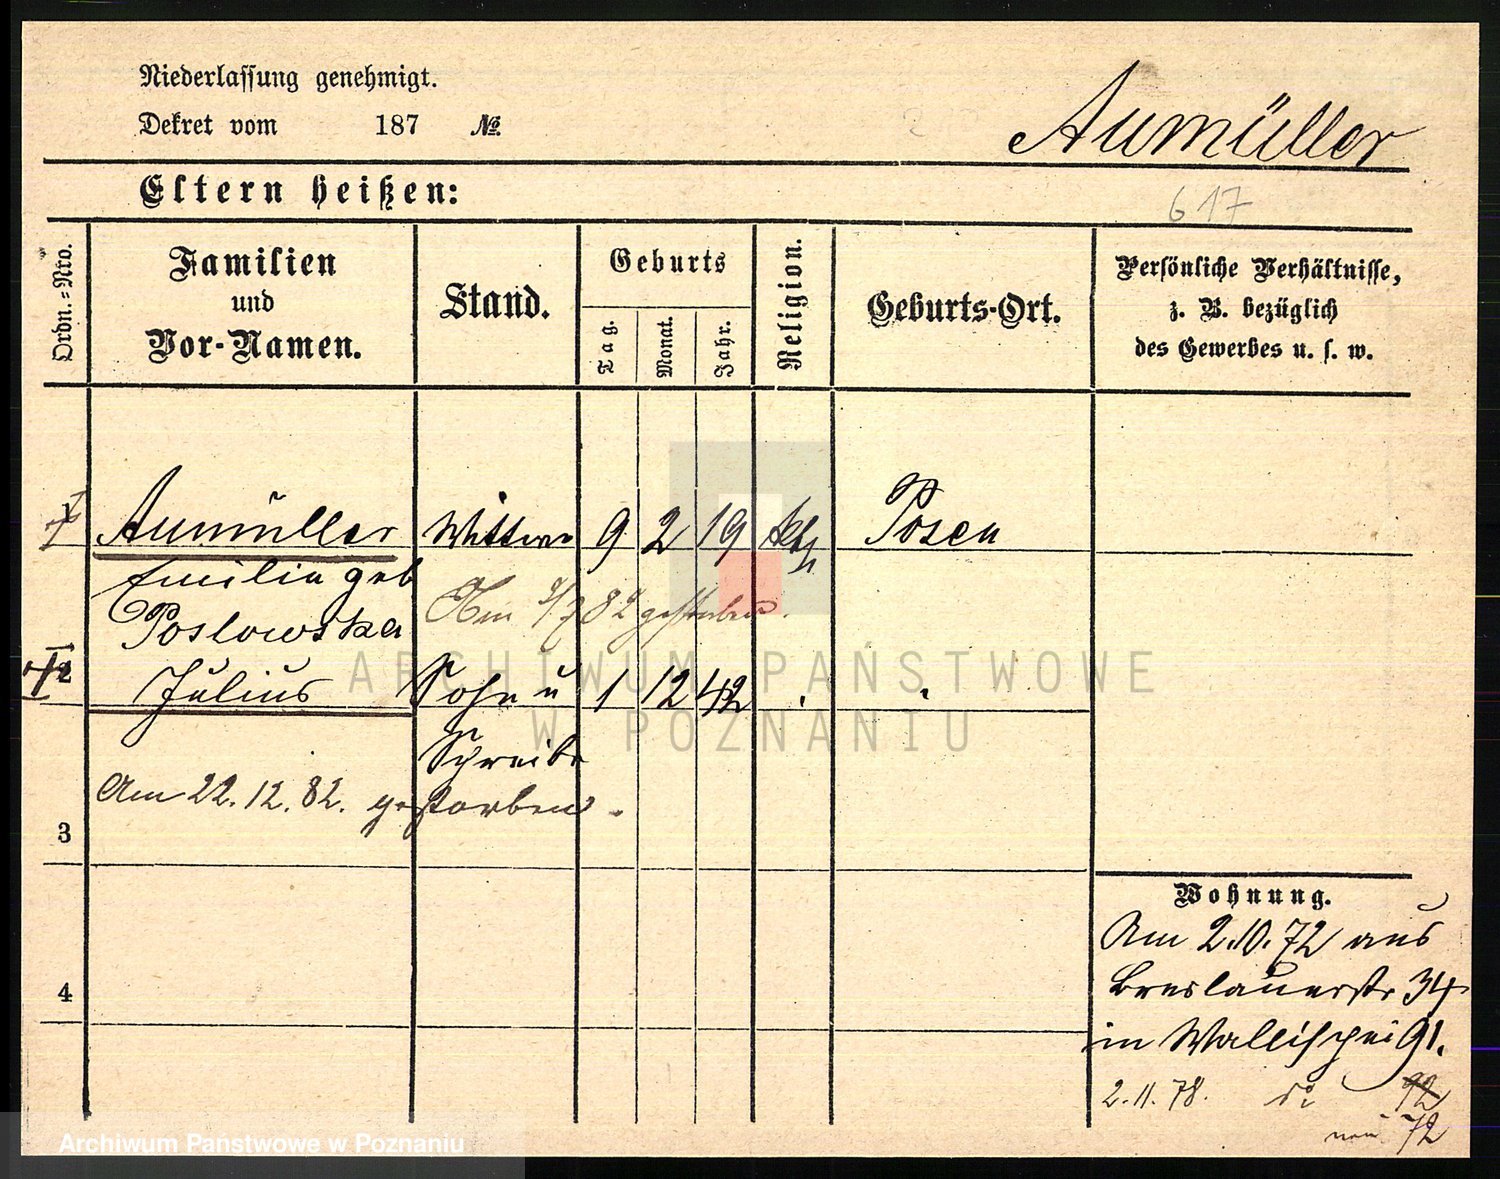 Niederlassung genehmigt.
Dekret vom 187 №
Aumüller
Eltern heißen:
617
Ordn.=Nro.
Familien
und
Vor-Namen.
Stand.
Geburts
Tag.
Monat.
Jahr.
Religion.
Geburts-Ort.
Persönliche Verhältnisse,
z. B. bezüglich
des Gewerbes u. s. w.
1 Aumüller Wittwe 9 2 19 kth Posen
Emilie geb
Poslowska
Am 82 gestorben.
2 Julius Sohn u 1 12 42
Schreiber
Am 22.12.82. gestorben.
3
4
Wohnung.
Am 2.10.72 aus
Breslauerstr 34
in Wallischei 91.
2.11.78. 92
72
ARCHIWUM PAŃSTWOWE
W POZNANIU
Archiwum Państwowe w Poznaniu